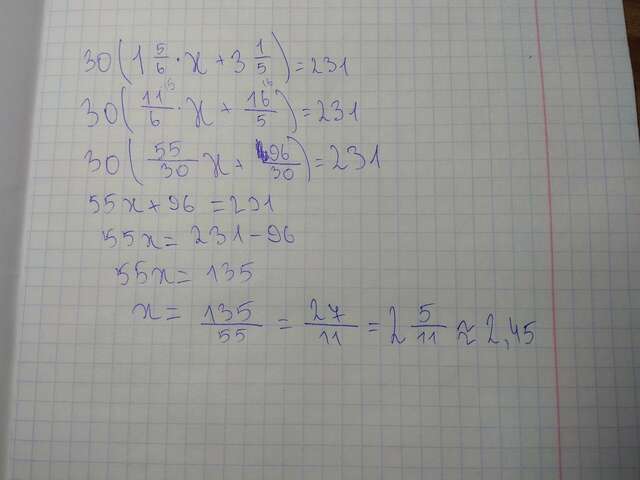 30(1 5/6 · x + 3 1/5) = 231
30(11/6 · x + 16/5) = 231
30(55/30 x + 96/30) = 231
55x + 96 = 231
55x = 231 - 96
55x = 135
x = 135/55 = 27/11 = 2 5/11 ≈ 2,45